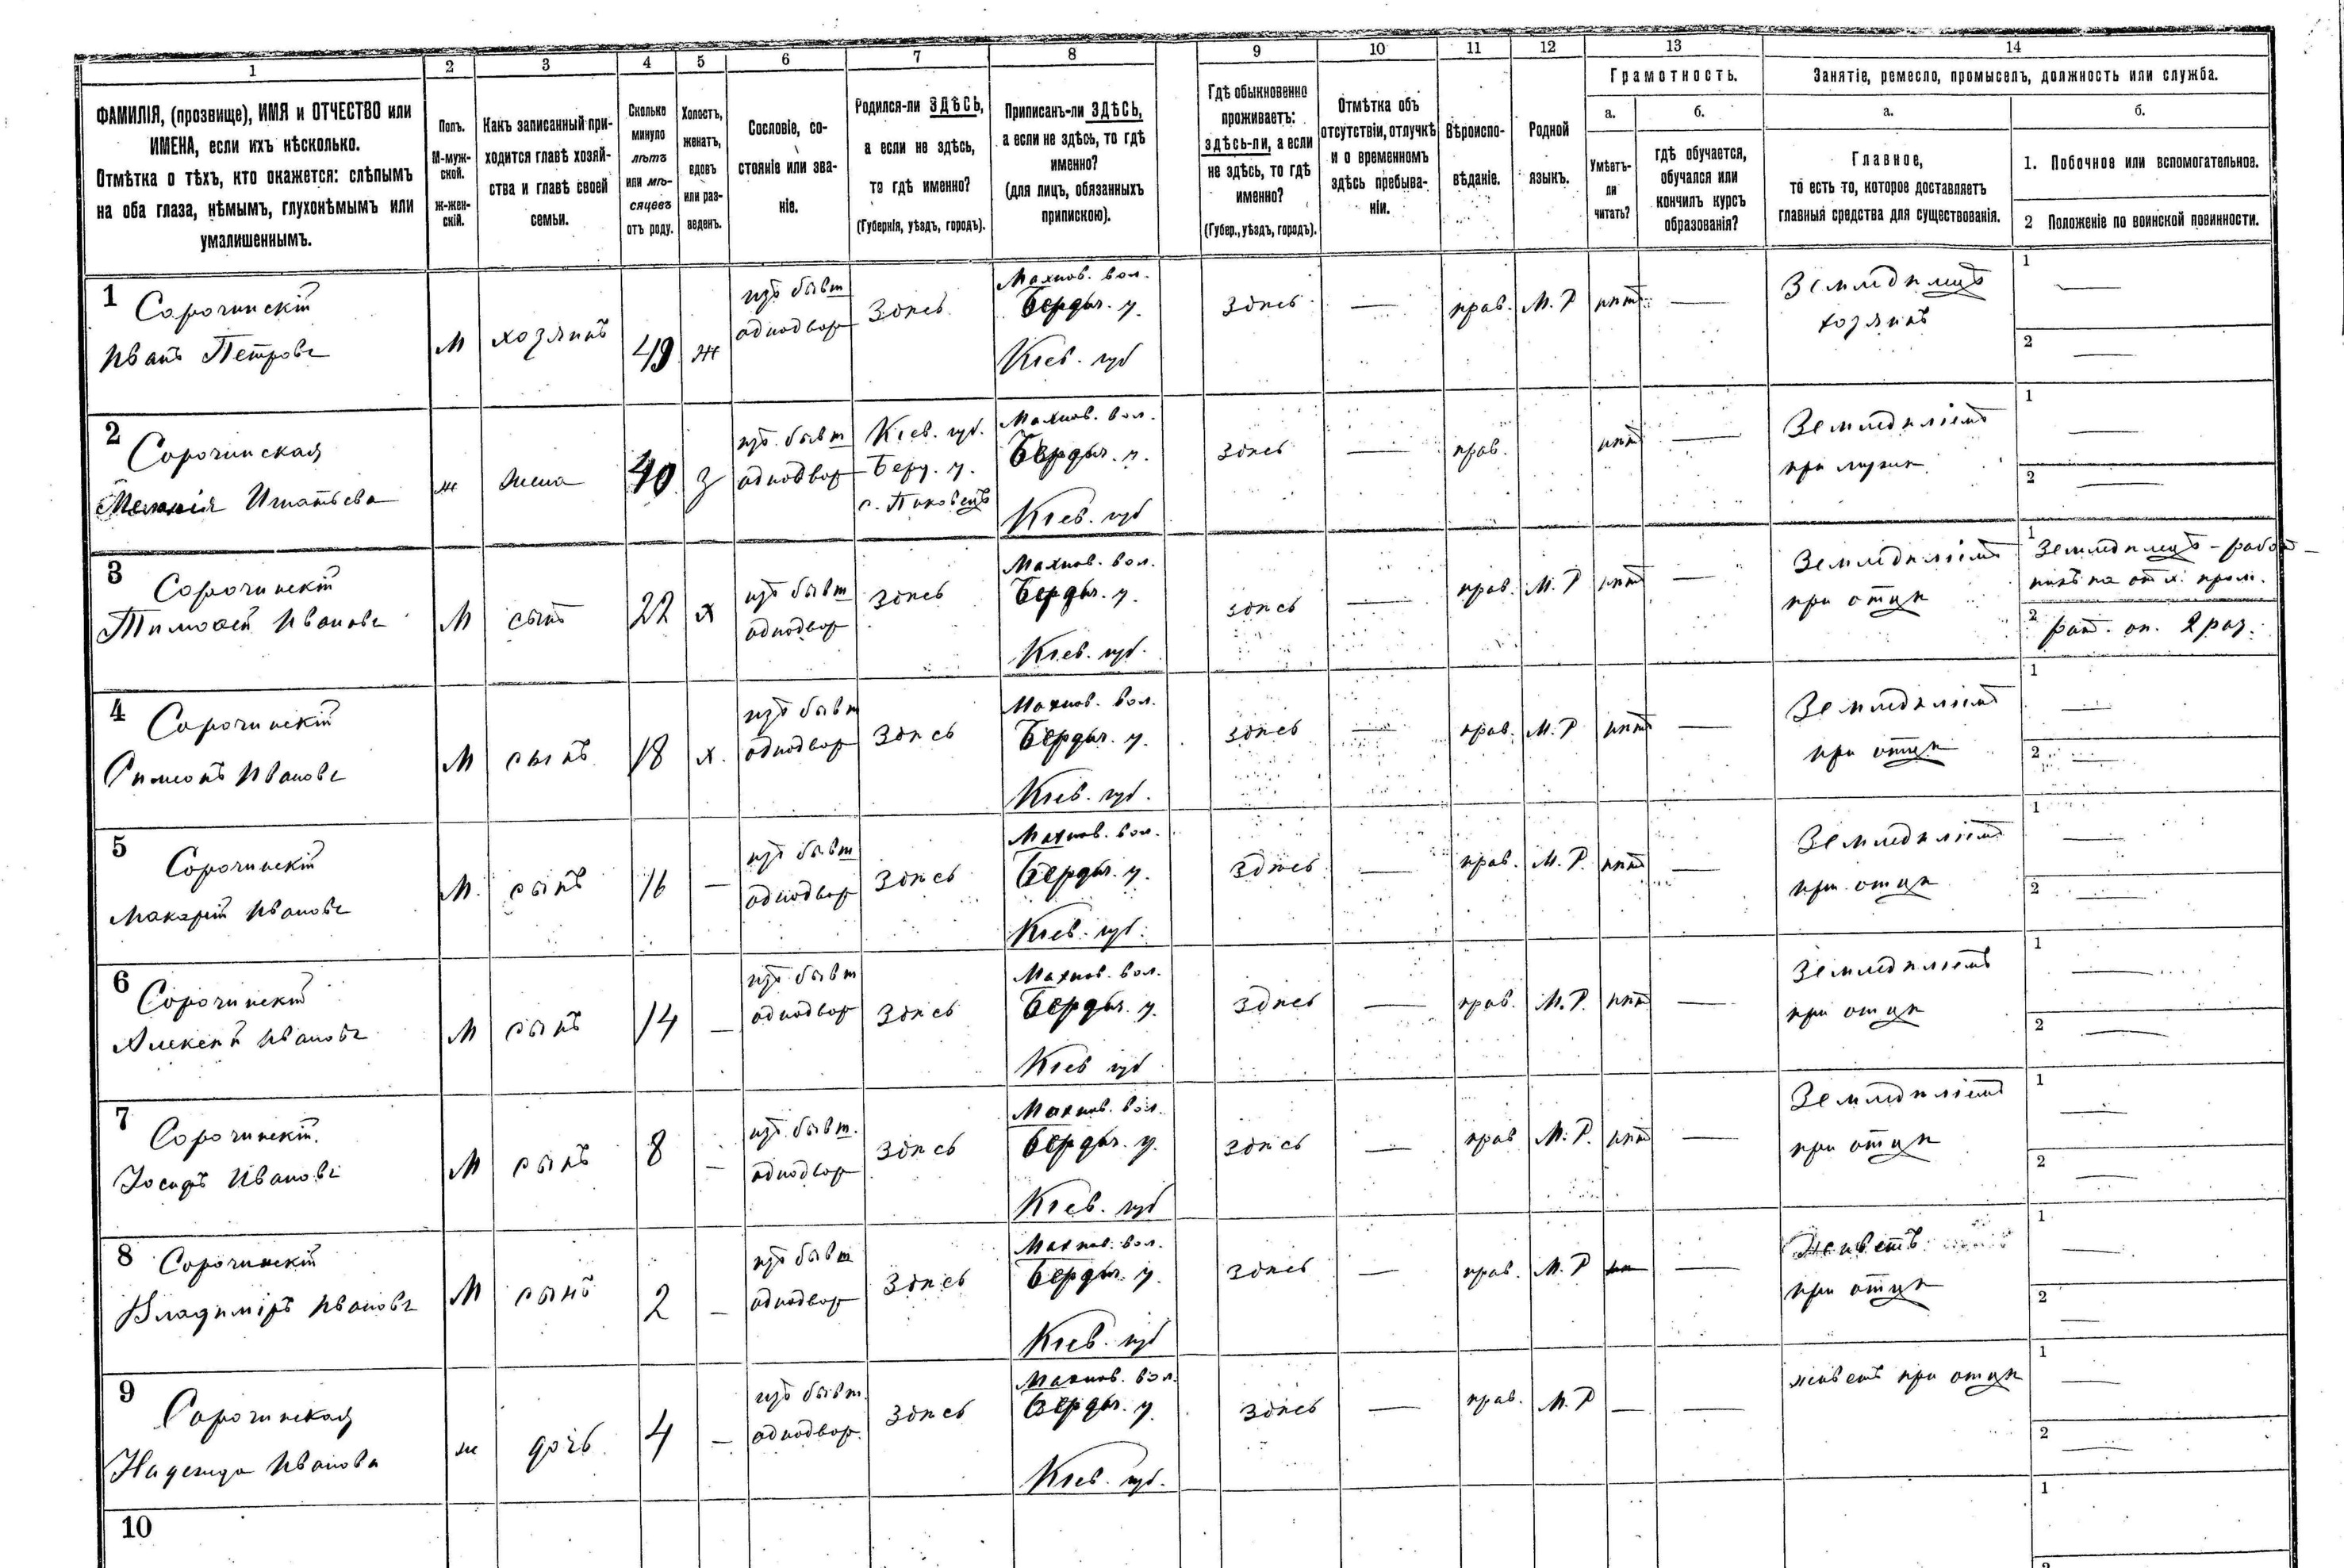 1
2
3
4
5
6
7
8
9
10
11
12
13
14
ФАМИЛІЯ, (прозвище), ИМЯ и ОТЧЕСТВО или
ИМЕНА, если ихъ нѣсколько.
Отмѣтка о тѣхъ, кто окажется: слѣпымъ
на оба глаза, нѣмымъ, глухонѣмымъ или
умалишеннымъ.
Полъ.
М-муж-
ской.
Ж-жен-
скій.
Какъ записанный при-
ходится главѣ хозяй-
ства и главѣ своей
семьи.
Сколько
минуло
лѣтъ
или мѣ-
сяцевъ
отъ роду.
Холостъ,
женатъ,
вдовъ
или раз-
веденъ.
Сословіе, со-
стояніе или зва-
ніе.
Родился-ли ЗДѢСЬ,
а если не здѣсь,
то гдѣ именно?
(Губернія, уѣздъ, городъ).
Приписанъ-ли ЗДѢСЬ,
а если не здѣсь, то гдѣ
именно?
(для лицъ, обязанныхъ
припискою).
Гдѣ обыкновенно
проживаетъ:
здѣсь-ли, а если
не здѣсь, то гдѣ
именно?
(Губер., уѣздъ, городъ).
Отмѣтка объ
отсутствіи, отлучкѣ
и о временномъ
здѣсь пребыва-
ніи.
Вѣроиспо-
вѣданіе.
Родной
языкъ.
Грамотность.
а.
Умѣетъ-
ли
читать?
б.
гдѣ обучается,
обучался или
кончилъ курсъ
образованія?
Занятіе, ремесло, промыселъ, должность или служба.
а.
Главное,
то есть то, которое доставляетъ
главныя средства для существованія.
б.
1. Побочное или вспомогательное.
2 Положеніе по воинской повинности.
1
Сорочинскій
Иванъ Петровъ
М
хозяинъ
49
ж
изъ бывш
однодвор
Здѣсь
Махнов. вол.
Бердич. у.
Кіев. губ
Здѣсь
—
прав.
М. Р
нѣтъ
—
Земледѣлецъ
хозяинъ
1 —
2 —
2
Сорочинская
Игнатьева
ж
жена
40
з
изъ бывш
однодвор
Кіев. губ.
Берд. у.
с. Пиковецъ
Махнов. вол.
Бердич. у.
Кіев. губ
Здѣсь
—
прав.
нѣтъ
—
Земледѣліемъ
при мужѣ
1 —
2 —
3
Сорочинскій
Тимофей Ивановъ
М
сынъ
22
х
изъ бывш
однодвор
Здѣсь
Махнов. вол.
Бердич. у.
Кіев. губ.
здѣсь
—
прав.
М. Р
нѣтъ
—
Земледѣліемъ
при отцѣ
1 Земледѣлецъ - работ-
никъ на отх. пром.
2 рат. оп. 2 раз.
4
Сорочинскій
Симеонъ Ивановъ
М
сынъ
18
х.
изъ бывш
однодвор
Здѣсь
Махнов. вол.
Бердич. у.
Кіев. губ.
здѣсь
—
прав.
М. Р
нѣтъ
—
Земледѣліемъ
при отцѣ
1 —
2 —
5
Сорочинскій
Макарій Ивановъ
М.
сынъ
16
—
изъ бывш
однодвор
Здѣсь
Махнов. вол.
Бердич. у.
Кіев. губ.
здѣсь
—
прав.
М. Р.
нѣтъ
—
Земледѣліемъ
при отцѣ
1 —
2 —
6
Сорочинскій
Алексѣй Ивановъ
М
сынъ
14
—
изъ бывш
однодвор
Здѣсь
Махнов. вол.
Бердич. у.
Кіев губ
здѣсь
—
прав.
М. Р.
нѣтъ
—
Земледѣліемъ
при отцѣ
1 —
2 —
7
Сорочинскій.
Іосифъ Ивановъ
М
сынъ
8
—
изъ бывш.
однодвор
Здѣсь
Махнов. вол.
Бердич. у.
Кіев. губ
здѣсь
—
прав
М. Р.
нѣтъ
—
Земледѣліемъ
при отцѣ
1 —
2 —
8
Сорочинскій
Владиміръ Ивановъ
М
сынъ
2
—
изъ бывш
однодвор
Здѣсь
Махнов. вол.
Бердич. у.
Кіев. губ
здѣсь
—
прав.
М. Р
—
Живетъ
при отцѣ
1 —
2 —
9
Сорочинская
Надежда Иванова
ж
дочь
4
—
изъ бывш.
однодвор.
Здѣсь
Махнов. вол.
Бердич. у.
Кіев. губ.
здѣсь
—
прав.
М. Р
—
—
живетъ при отцѣ
1 —
2 —
10
1